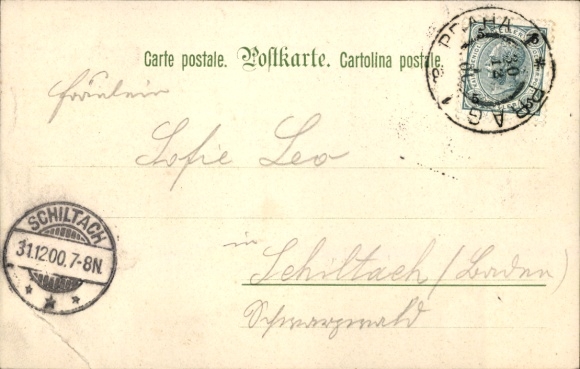 Carte postale. Postkarte. Cartolina postale.
PRAHA
PRAG
Fräulein
Sofie Leo
in
Schiltach (Baden)
Schwarzwald
SCHILTACH
31.12.00.7-8N.